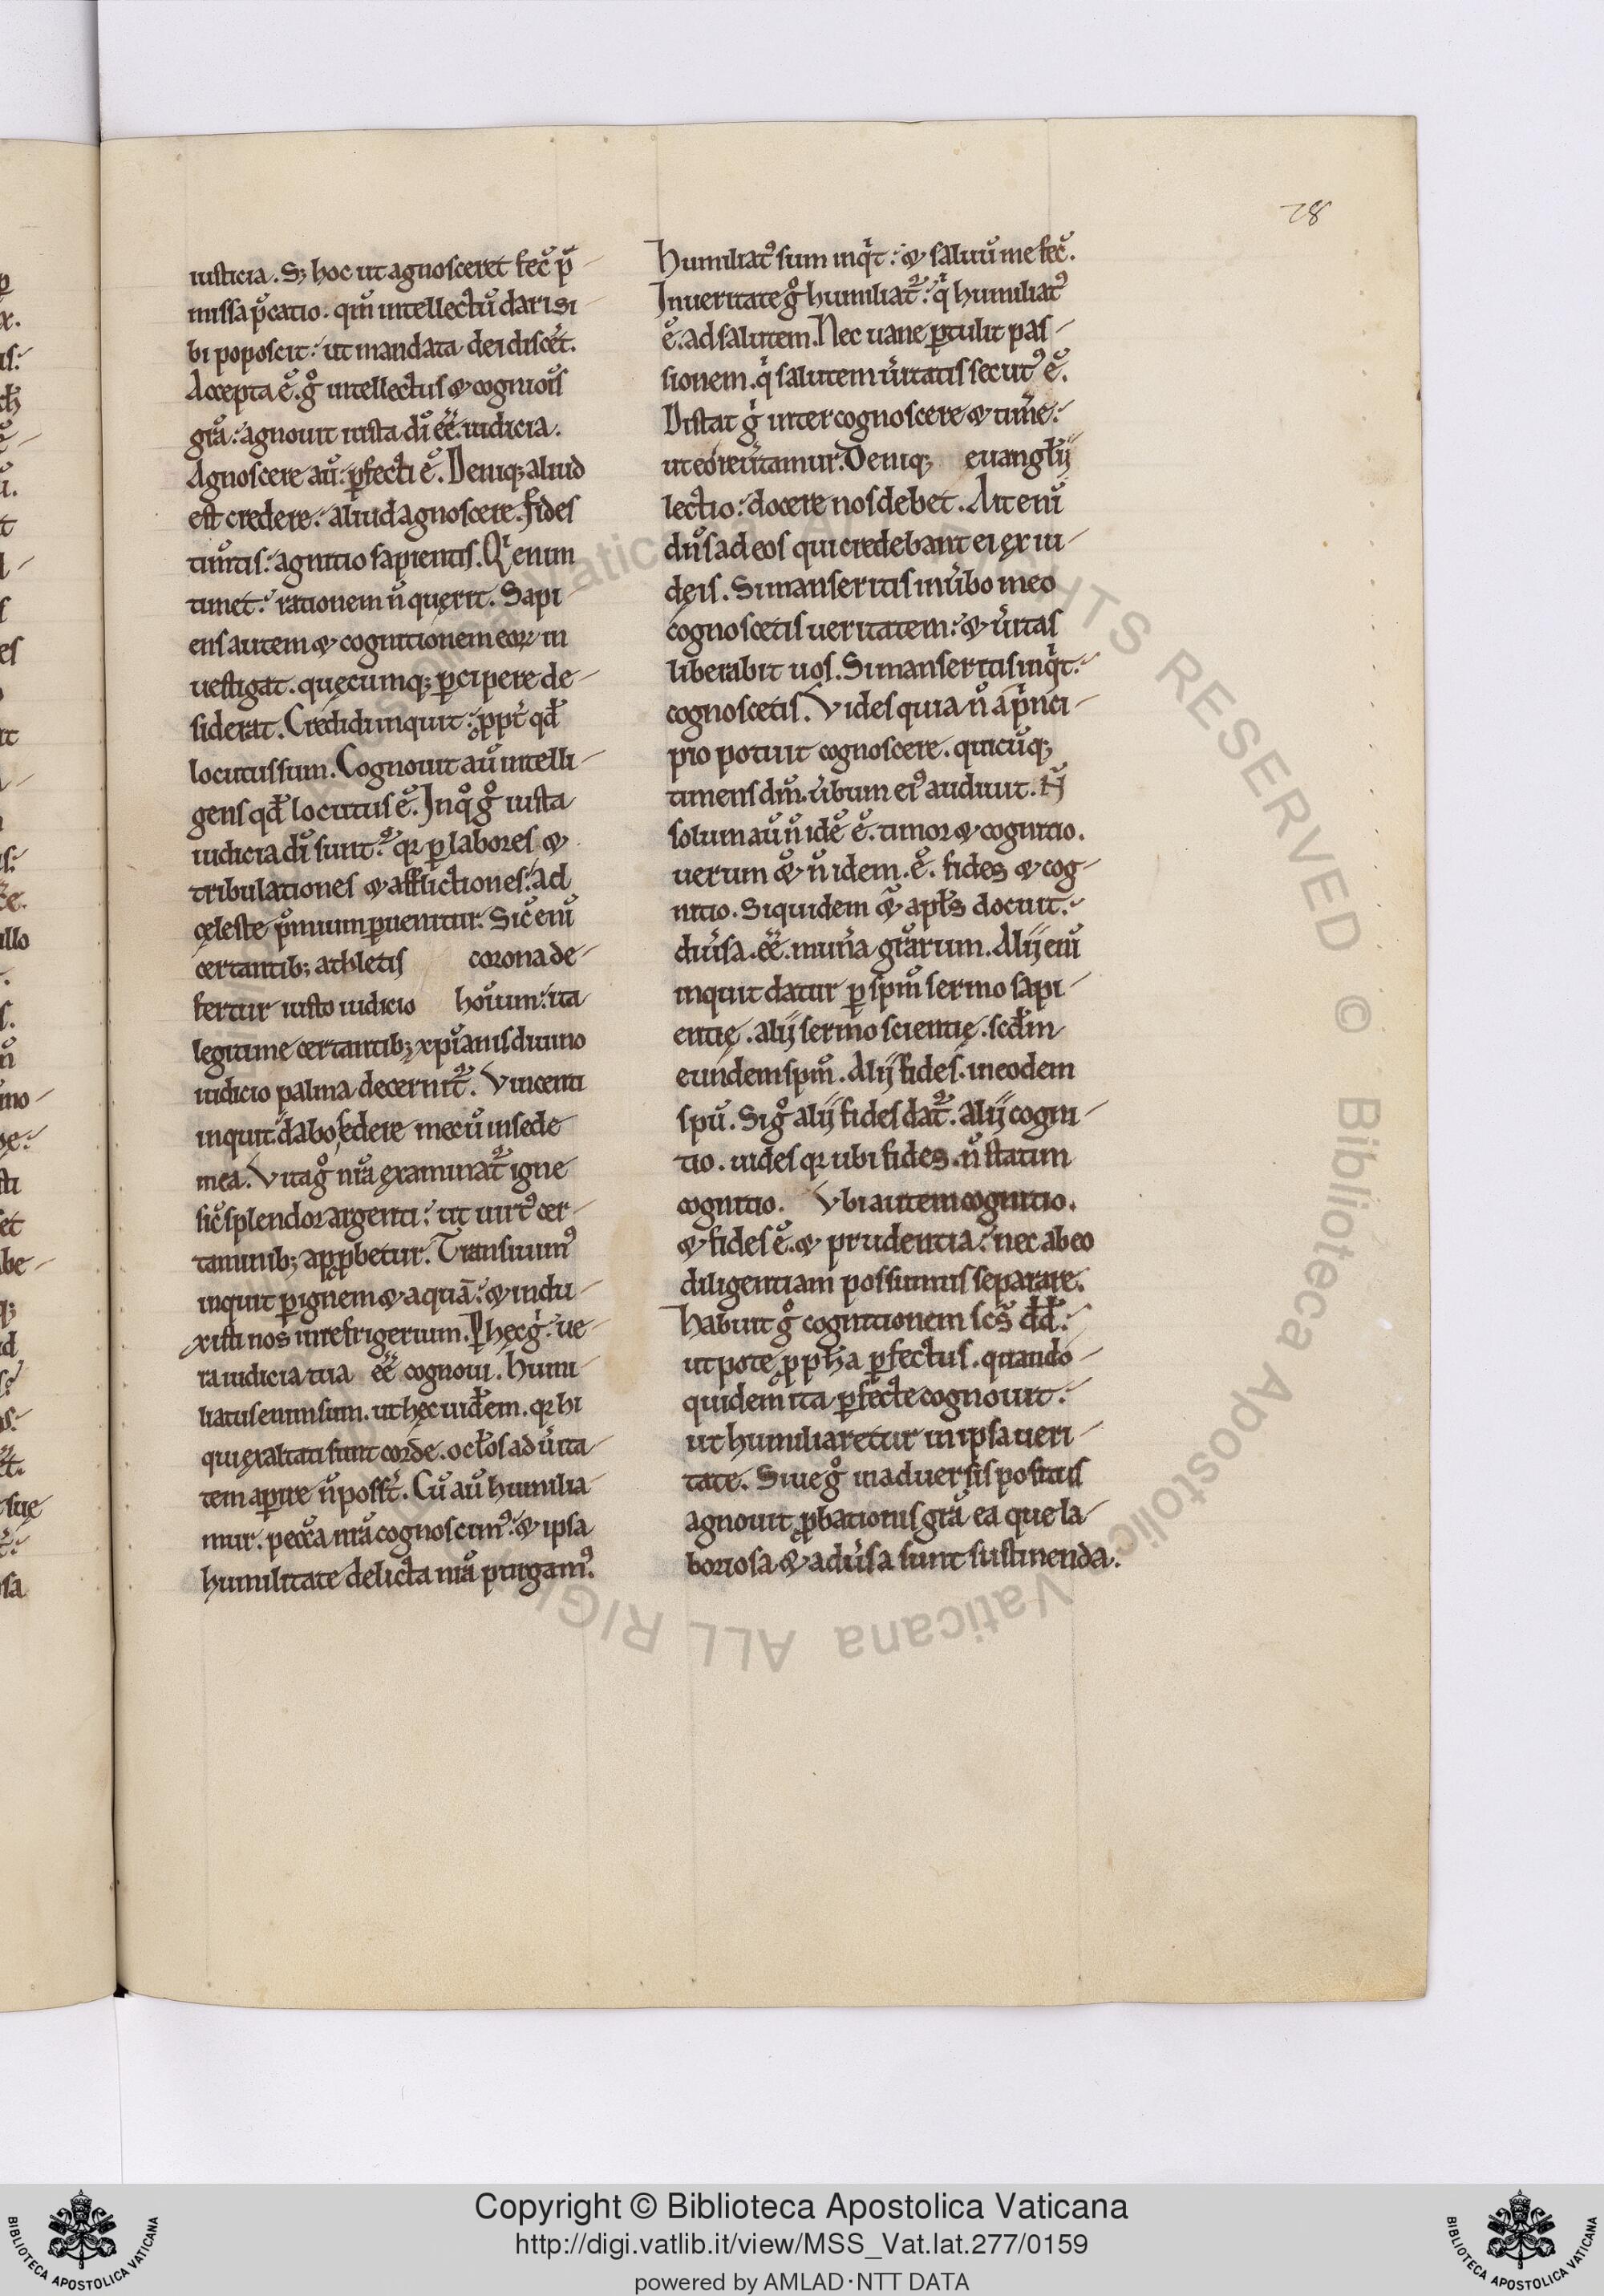 78
iusticia. S; hoc ut agnosceret fec̄ p̄
missa p̄catio. qm̄ intellectū dari si
bi poposcit: ut mandata dei discēt.
Accepta ē. gͦ intellectus & cognioīs
grā: agnouit iusta dī eē. iudicia.
Agnoscere aū: ꝑfecti ē. Deniq; aliud
est credere: aliud agnoscere. fides
tim̄tis: agnitio sapientis. Qⁱ enim
timet: rationem n̄ querit. Sapi
ens autem & cognitionem eoꝝ in
uestigat. quęcumq; ꝑcipere de
siderat. Credidi inquit: ꝓpt̄ qđ
locutus sum. Cognouit aū intelli
gens qđ locutus ē. Inqͦ gͦ iusta
iudicia dī sunt: qꝛ ꝑ labores &
tribulationes & afflictiones: ad
cęleste p̄mium ꝑuenitur. Sic enī
certantib; athletis corona de
fertur iusto iudicio hoīum: ita
legitime certantib; xp̄ianis diuino
iudicio palma decernit̄. Vincenti
inquit dabo sedere mecū in sede
mea. Vita gͦ nr̄a examinat̄ igne
sic splendor argenti: ut uirtꝰ cer
taminib; apꝓbetur. Transiuimꝰ
inquit ꝑ ignem & aquā: & indu
xisti nos in refrigerium. P̱ hęc gͥ: ue
ra iudicia tua eē cognoui. Humi
liatus enim sum. ut hęc uiđem. qꝛ hi
qui exaltati sunt corde. ocl̄os ad ūita
tem aꝑire n̄ posst̄. Cū aū humilia
mur. peccā nr̄a cognoscimꝰ: & ipsa
humilitate delicta nr̄a purgamꝰ.
Humiliatꝰ sum inqͥt: & saluū me fec̄.
In ueritate gͦ humiliat̄: qͥ humiliatꝰ
ē. ad salutem. Nec uane ꝑtulit pas
sionem. qͥ salutem ūitatis secutꝰ ē.
Distat gͥ inter cognoscere & tim̄e:
ut eo reūtamur. Deniq; euangl̄ij
lectio: docere nos debet. Ait enī
dn̄s ad eos qui credebant ei ex iu
deis. Si manseritis in ūbo meo
cognoscetis ueritatem: & ūitas
liberabit uos. Si manseritis inqͥt:
cognoscetis. Vides quia n̄ a pͥnci
pio potuit cognoscere. quicūq;
timens dm̄. ūbum eiꝰ audiuit. N̄
solum aū n̄ idē ē. timor & cognitio.
uerum & n̄ idem. ē. fides & cog
nitio. Siquidem & apl̄s docuit:
diūsa. eē. mun̄a grārum. Alij enī
inquit datur ꝑ spm̄ sermo sapi
entię. alij sermo scientię. scđm
eundem spm̄. Alij fides. in eodem
spū. Si gͦ alij fides dat̄. alij cogni
tio. uides qꝛ ubi fides. n̄ statim
cognitio. Vbi autem cognitio.
& fides ē. & prudentia: nec ab eo
diligentiam possumus separare.
Habuit gͦ cognitionem scs̄ đđ:
ut pote ꝓpħa ꝑfectus. quando
quidem ita ꝑfecte cognouit:
ut humiliaretur in ipsa ueri
tate. Siue gͦ in aduersis positus
agnouit ꝓbationis grā ea que la
boriosa & adūsa sunt sustinenda.
Copyright © Biblioteca Apostolica Vaticana
http://digi.vatlib.it/view/MSS_Vat.lat.277/0159
powered by AMLAD·NTT DATA